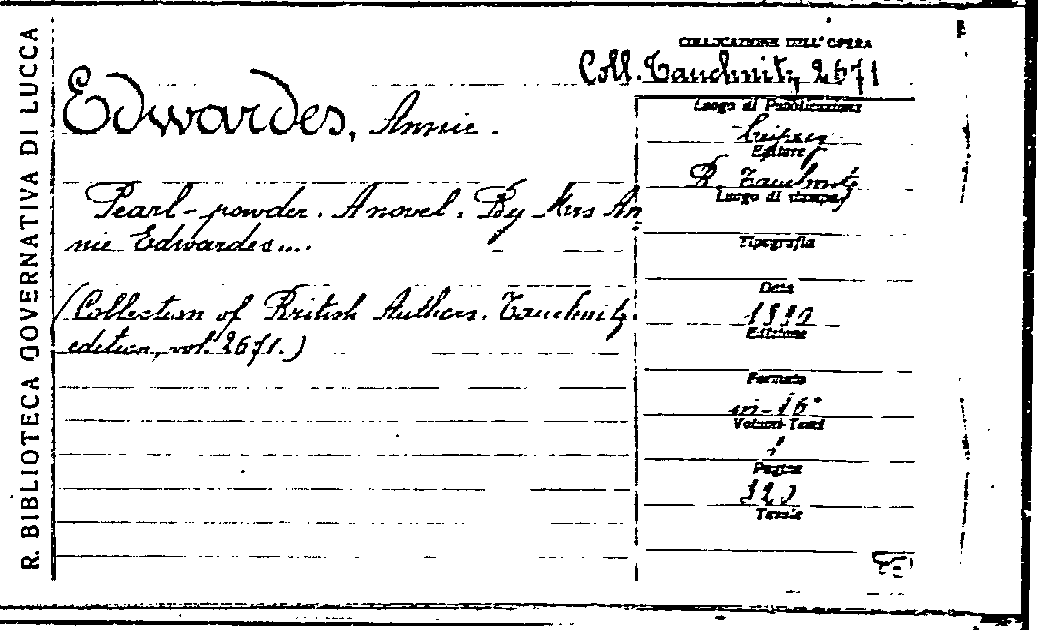 R. BIBLIOTECA GOVERNATIVA DI LUCCA
COLLOCAZIONE DELL'OPERA
Coll. Tauchnitz 2671
Edwardes, Annie.
Pearl-powder. A novel. By Mrs An
nie Edwardes....
(Collection of British Authors. Tauchnitz
edition, vol. 2671.)
Luogo di Pubblicazione
Leipzig
Editore
B. Tauchnitz
Luogo di stampa
Tipografia
Data
1890
Edizione
Formato
in-16°
Volumi-Tomi
1
Pagine
Tavole